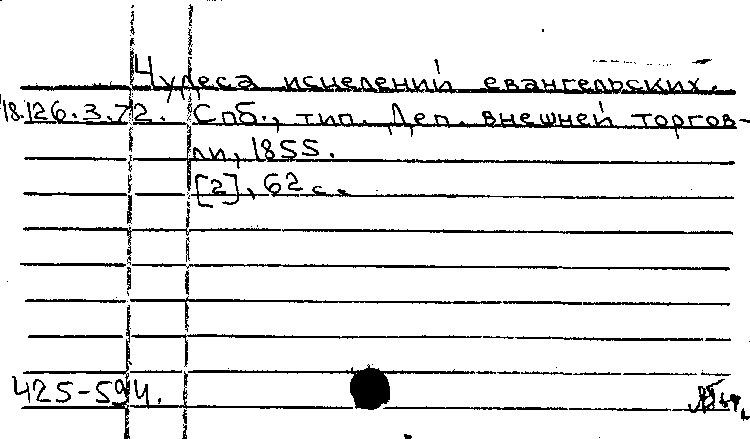 Чудеса исцелений евангельских.
18.126.3.72. Спб., тип. Деп. внешней торгов-
ли, 1855.
[2], 62 с.
425-594.